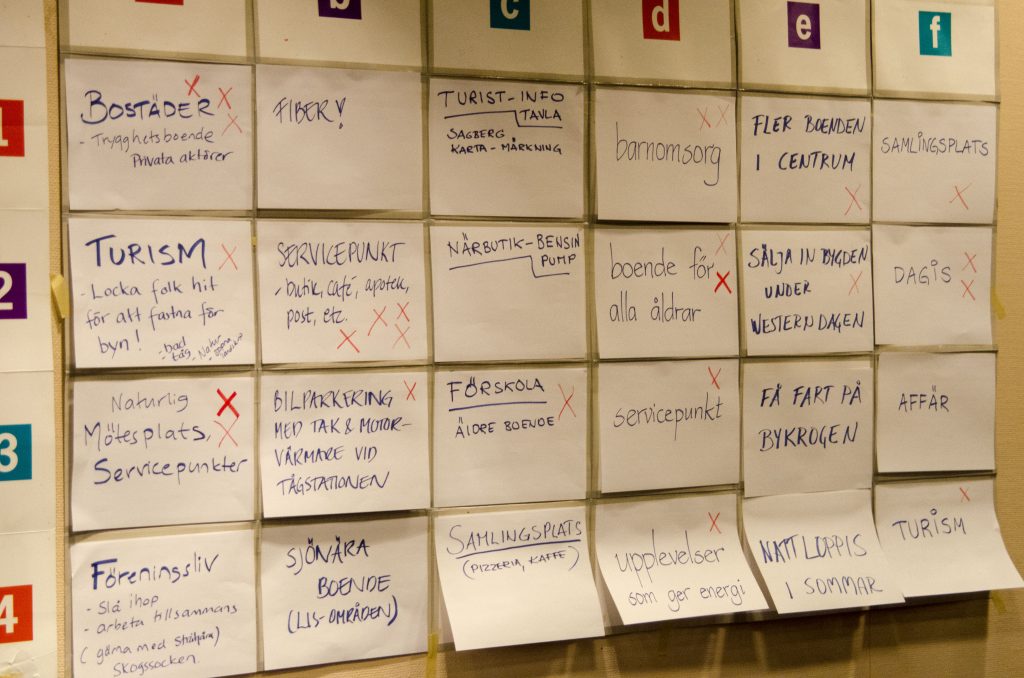 b
c
d
e
f
1
BOSTÄDER
- Trygghetsboende
Privata aktörer
FIBER!
TURIST-INFO
TAVLA
SAGBERG
KARTA-MÄRKNING
barnomsorg
FLER BOENDEN
I CENTRUM
SAMLINGSPLATS
2
TURISM
- Locka folk hit
för att fastna för
byn!
- bad
tåg
- Natur
SERVICEPUNKT
- butik, café, apotek,
post, etc.
NÄRBUTIK-BENSIN
PUMP
boende för
alla åldrar
SÄLJA IN BYGDEN
UNDER
WESTERNDAGEN
DAGIS
3
Naturlig
Mötesplats,
Servicepunkter
BILPARKERING
MED TAK & MOTOR-
VÄRMARE VID
TÅGSTATIONEN
FÖRSKOLA
ÄLDRE BOENDE
servicepunkt
FÅ FART PÅ
BYKROGEN
AFFÄR
4
Föreningsliv
- Slå ihop
- arbeta tillsammans
(gärna med
Skogssocken
SJÖNÄRA
BOENDE
(LIS-OMRÅDEN)
SAMLINGSPLATS
(PIZZERIA, KAFFE)
upplevelser
som ger energi
NATTLOPPIS
I SOMMAR
TURISM